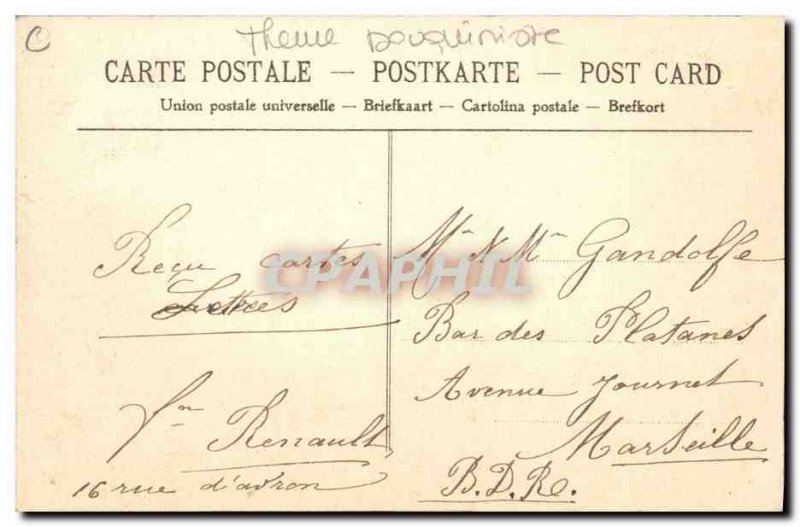 C Theme Bouquiniste
CARTE POSTALE — POSTKARTE — POST CARD
Union postale universelle — Briefkaart — Cartolina postale — Brefkort
Reçu cartes
Lettres
Renault
16 rue d'avron
CPAPHIL
Gandolfe
Bar des Platanes
Avenue Journet
Marseille
B.D.R.